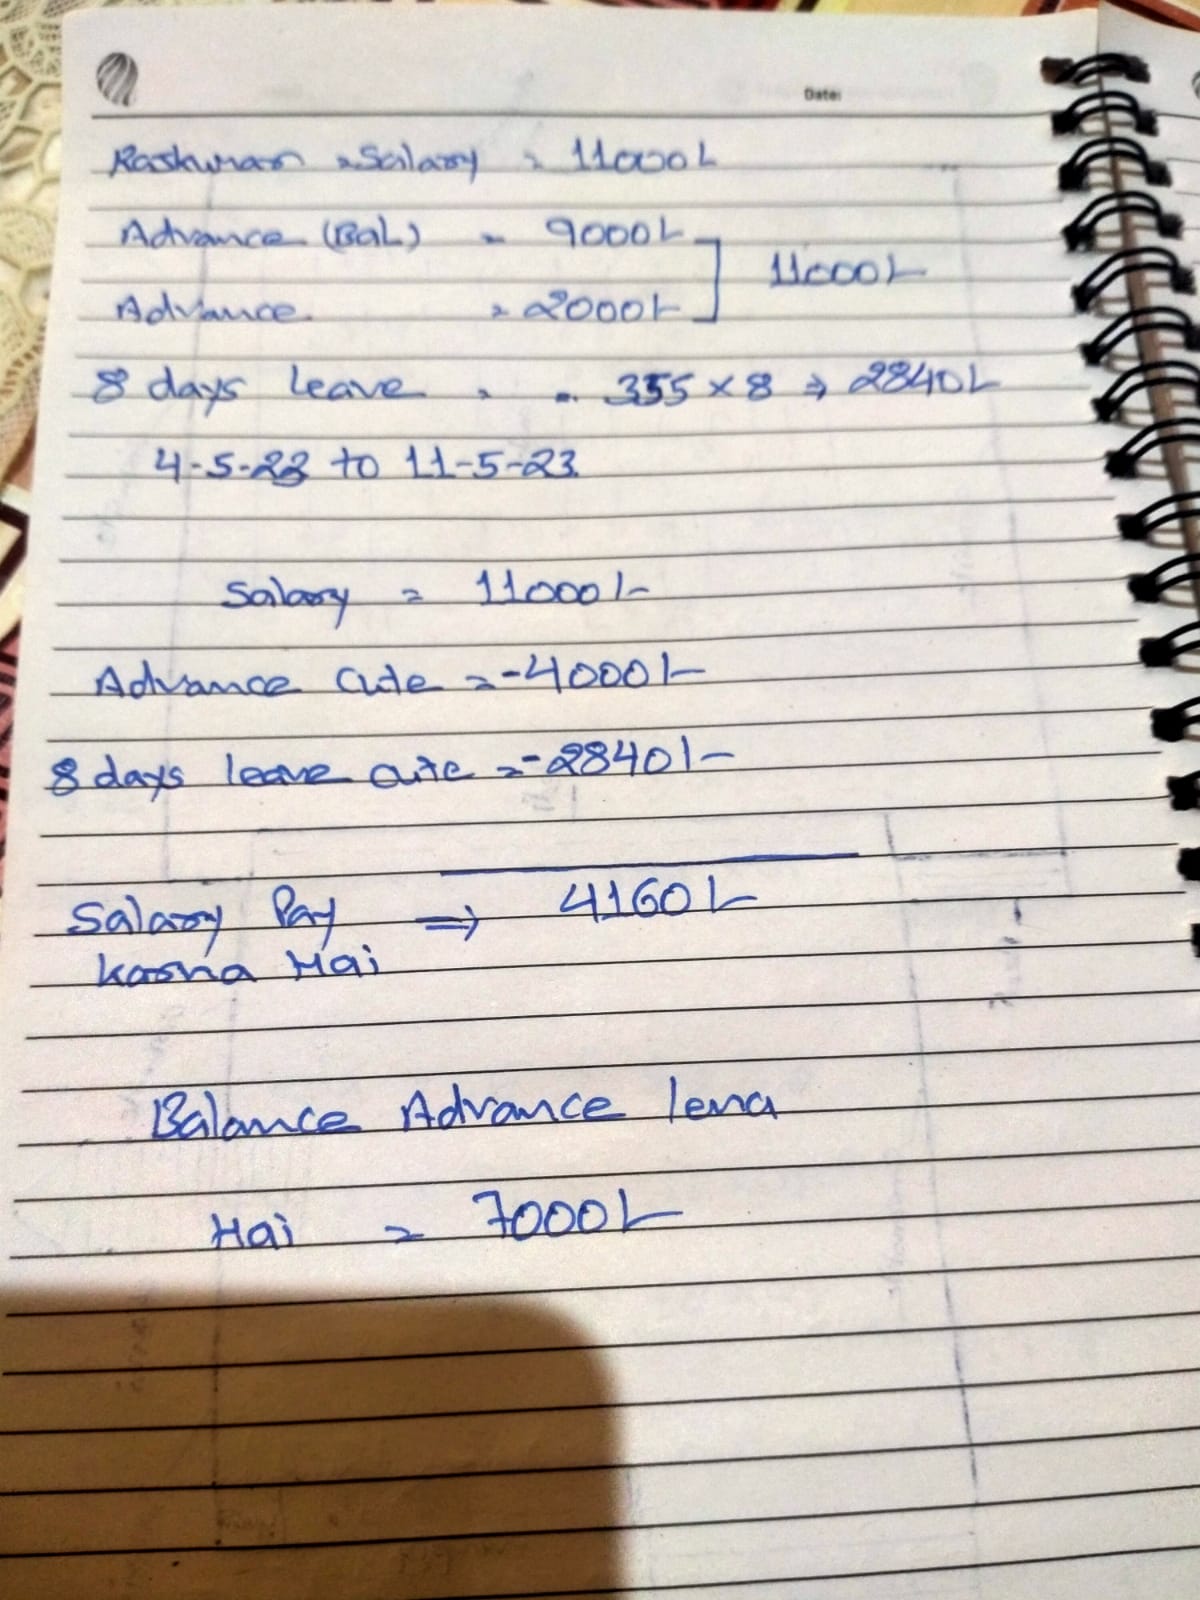 Date:
Salary = 11000/-
Advance (Bal) = 9000/-
11000/-
Advance = 2000/-
8 days leave = 355 × 8 ⇒ 2840/-
4-5-23 to 11-5-23
Salary = 11000/-
Advance Cute = -4000/-
8 days leave cute = -2840/-
Salary Pay ⇒ 4160/-
karna Hai
Balance Advance lena
Hai = 7000/-